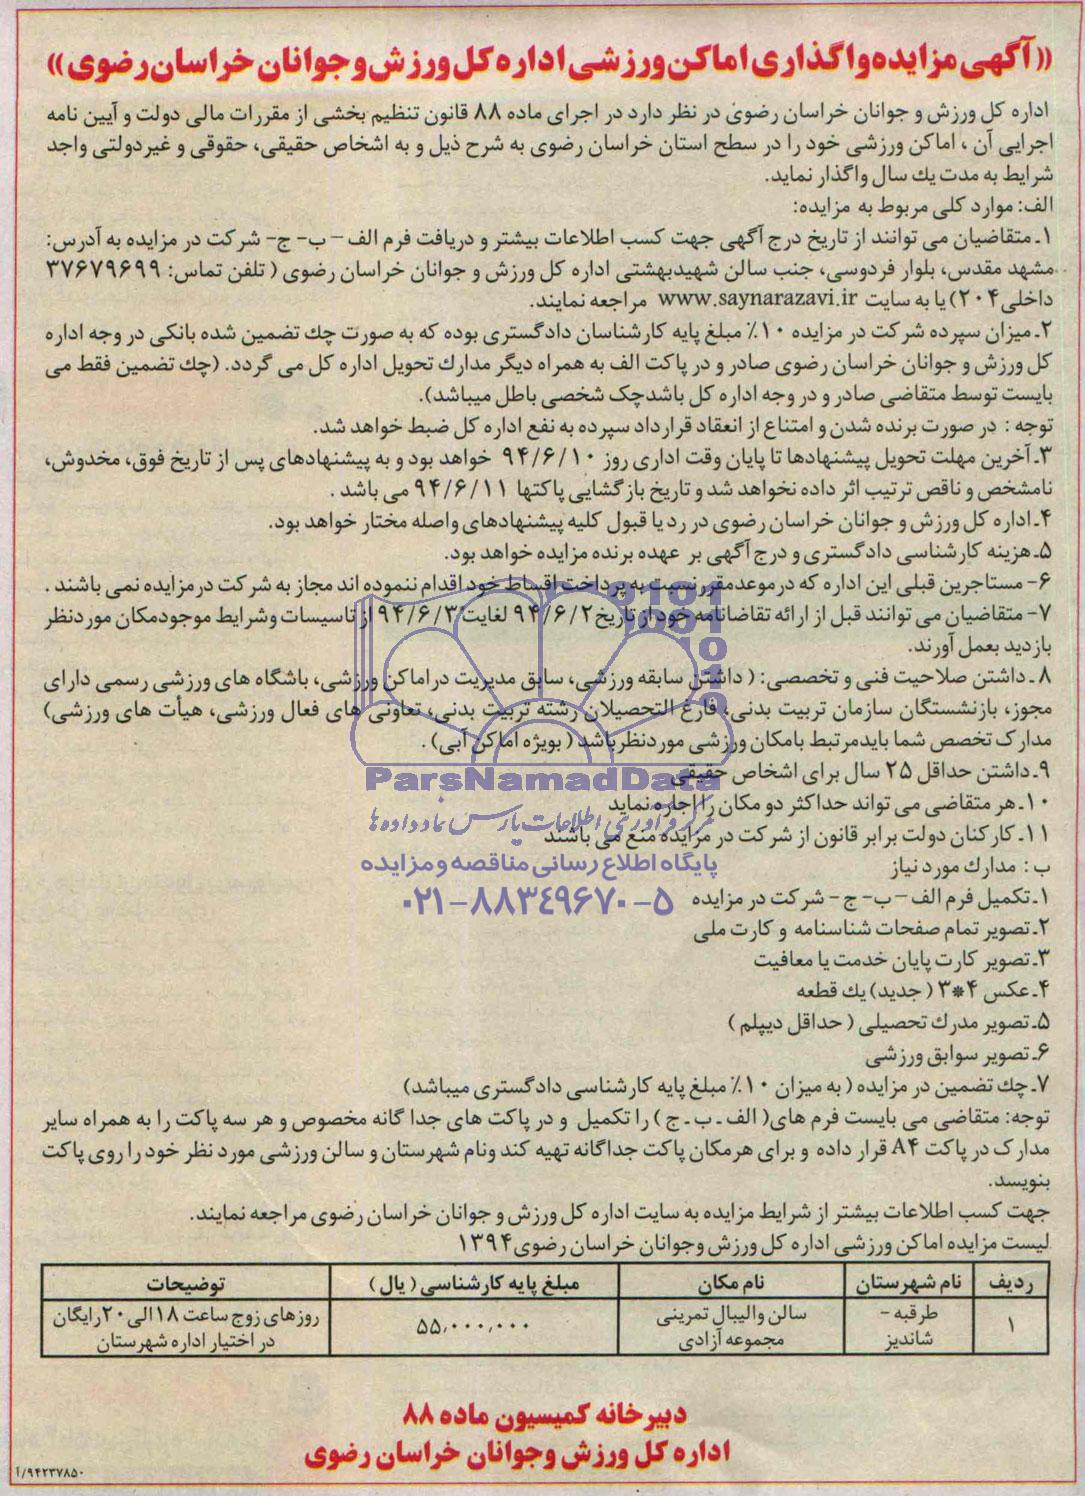 «آگهی مزایده واگذاری اماکن ورزشی اداره کل ورزش و جوانان خراسان رضوی»
اداره کل ورزش و جوانان خراسان رضوی در نظر دارد در اجرای ماده ۸۸ قانون تنظیم بخشی از مقررات مالی دولت و آیین نامه
اجرایی آن ، اماکن ورزشی خود را در سطح استان خراسان رضوی به شرح ذیل و به اشخاص حقیقی، حقوقی و غیردولتی واجد
شرایط به مدت یك سال واگذار نماید.
الف: موارد کلی مربوط به مزایده:
۱ـ متقاضیان می توانند از تاریخ درج آگهی جهت کسب اطلاعات بیشتر و دریافت فرم الف – ب- ج- شرکت در مزایده به آدرس:
مشهد مقدس، بلوار فردوسی، جنب سالن شهیدبهشتی اداره کل ورزش و جوانان خراسان رضوی ( تلفن تماس: ۳۷۶۷۹۶۹۹
داخلی۲۰۴) یا به سایت www.saynarazavi.ir مراجعه نمایند.
۲ـ میزان سپرده شرکت در مزایده ۱۰٪ مبلغ پایه کارشناسان دادگستری بوده که به صورت چك تضمین شده بانکی در وجه اداره
کل ورزش و جوانان خراسان رضوی صادر و در پاکت الف به همراه دیگر مدارك تحویل اداره کل می گردد. (چك تضمین فقط می
بایست توسط متقاضی صادر و در وجه اداره کل باشدچک شخصی باطل میباشد).
توجه : در صورت برنده شدن و امتناع از انعقاد قرارداد سپرده به نفع اداره کل ضبط خواهد شد.
۳ـ آخرین مهلت تحویل پیشنهادها تا پایان وقت اداری روز ۹۴/۶/۱۰ خواهد بود و به پیشنهادهای پس از تاریخ فوق، مخدوش،
نامشخص و ناقص ترتیب اثر داده نخواهد شد و تاریخ بازگشایی پاکتها ۹۴/۶/۱۱ می باشد .
۴ـ اداره کل ورزش و جوانان خراسان رضوی در رد یا قبول کلیه پیشنهادهای واصله مختار خواهد بود.
۵ـ هزینه کارشناسی دادگستری و درج آگهی بر عهده برنده مزایده خواهد بود.
۶- مستاجرین قبلی این اداره که درموعدمقررنسبت به پرداخت اقساط خود اقدام ننموده اند مجاز به شرکت درمزایده نمی باشند .
۷- متقاضیان می توانند قبل از ارائه تقاضانامه خود از تاریخ۹۴/۶/۲ لغایت۹۴/۶/۳ از تاسیسات وشرایط موجودمکان موردنظر
بازدید بعمل آورند.
۸ ـ داشتن صلاحیت فنی و تخصصی: ( داشتن سابقه ورزشی، سابق مدیریت دراماکن ورزشی، باشگاه های ورزشی رسمی دارای
مجوز، بازنشستگان سازمان تربیت بدنی، فارغ التحصیلان رشته تربیت بدنی، تعاونی های فعال ورزشی، هیأت های ورزشی)
مدارک تخصص شما بایدمرتبط بامکان ورزشی موردنظرباشد ( بویژه اماکن آبی) .
ParsNamadData
۹ـ داشتن حداقل ۲۵ سال برای اشخاص حقیقی
۱۰ـ هر متقاضی می تواند حداکثر دو مکان را اجاره نماید
مرکز فرآوری اطلاعات پارس نماد داده ها
۱۱ـ کارکنان دولت برابر قانون از شرکت در مزایده منع می باشند
پایگاه اطلاع رسانی مناقصه و مزایده
ب : مدارك مورد نیاز
۱ـ تکمیل فرم الف – ب- ج- شرکت در مزایده
۰۲۱-۸۸۳۴۹۶۷۰-۵
۲ـ تصویر تمام صفحات شناسنامه و کارت ملی
۳ـ تصویر کارت پایان خدمت یا معافیت
۴ـ عکس ۴*۳ ( جدید) یك قطعه
۵ـ تصویر مدرك تحصیلی ( حداقل دیپلم )
۶ـ تصویر سوابق ورزشی
۷ـ چك تضمین در مزایده ( به میزان ۱۰٪ مبلغ پایه کارشناسی دادگستری میباشد)
توجه: متقاضی می بایست فرم های( الف ـ ب ـ ج ) را تکمیل و در پاکت های جدا گانه مخصوص و هر سه پاکت را به همراه سایر
مدارک در پاکت A۴ قرار داده و برای هرمکان پاکت جداگانه تهیه کند ونام شهرستان و سالن ورزشی مورد نظر خود را روی پاکت
بنویسد.
جهت کسب اطلاعات بیشتر از شرایط مزایده به سایت اداره کل ورزش و جوانان خراسان رضوی مراجعه نمایند.
لیست مزایده اماکن ورزشی اداره کل ورزش وجوانان خراسان رضوی۱۳۹۴
ردیف نام شهرستان نام مکان مبلغ پایه کارشناسی ( یال ) توضیحات
۱ طرقبه - شاندیز سالن والیبال تمرینی مجموعه آزادی ۵۵,۰۰۰,۰۰۰ روزهای زوج ساعت ۱۸الی ۲۰رایگان در اختیار اداره شهرستان
دبیرخانه کمیسیون ماده ۸۸
اداره کل ورزش و جوانان خراسان رضوی
۹۴۲۳۷۸۵۰/آ